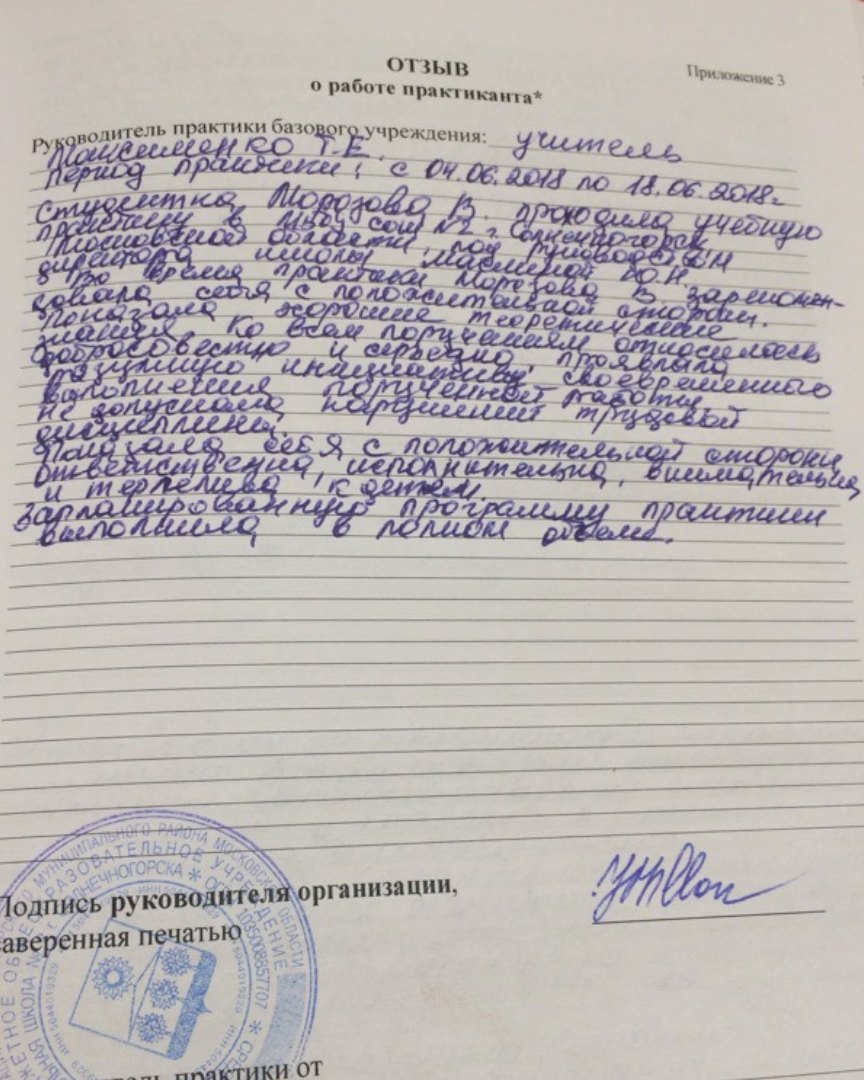 Приложение 3
ОТЗЫВ
о работе практиканта*
Руководитель практики базового учреждения: учитель
Максименко Т.Е.
Период практики: с 04.06.2018 по 18.06.2018г
Студентка Морозова В. проходила учебную
практику в МБОУ СОШ №2 г. Солнечногорск
Московской области, под руководством
директора школы Ю.Н.
Во время практики Морозова В. зарекомен-
довала себя с положительной стороны.
Показала хорошие теоретические
знания. Ко всем поручениям относилась
добросовестно и серьезно, проявляла
разумную инициативу, своевременного
выполнения порученной работы,
не допускала нарушений трудовой
дисциплины.
Показала себя с положительной стороны
ответственна, исполнительна, внимательна
и терпелива к детям.
Запланированную программу практики
выполнила в полном объеме.
Подпись руководителя организации,
заверенная печатью
МУНИЦИПАЛЬНОГО РАЙОНА МОСКОВСКОЙ ОБЛАСТИ
ОБРАЗОВАТЕЛЬНОЕ УЧРЕЖДЕНИЕ
СОЛНЕЧНОГОРСКА
ИНН 5044019329
практики от